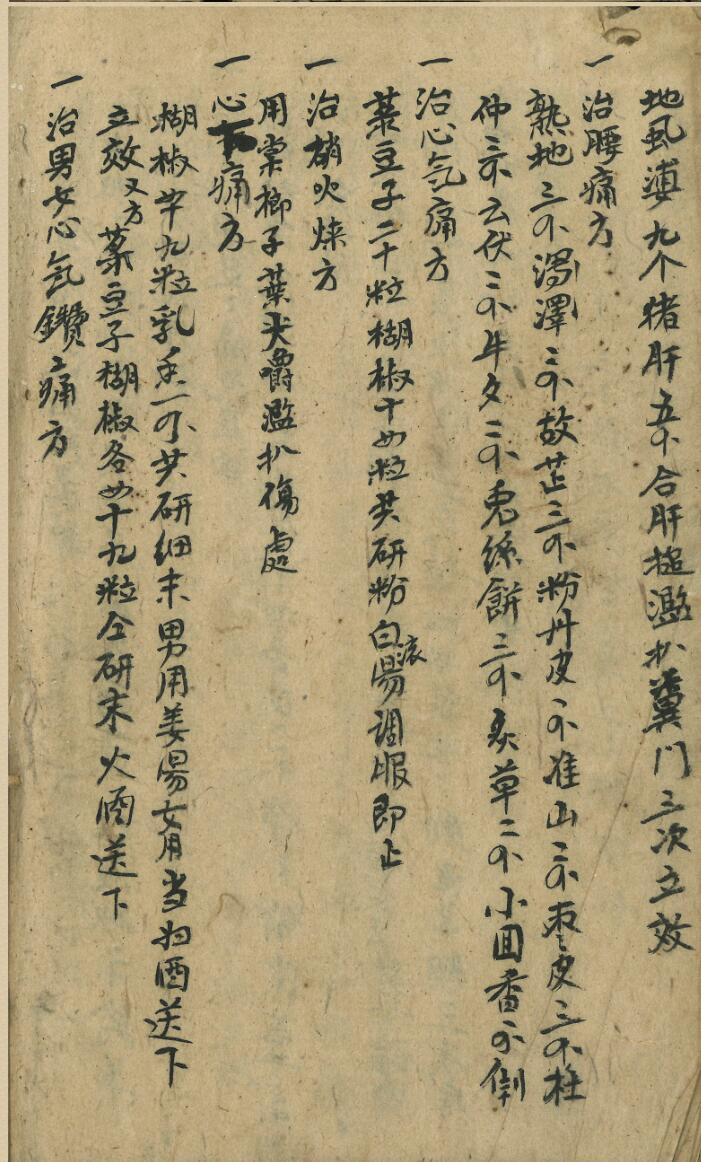 地虱婆九个猪肝五个合肝搥濫扒糞门三次立效
一治腰痛方
熟地三个澤三个故芷三个粉丹皮个淮山三个枣皮三个杜
仲三个云伏三个牛夕三个兎絲餅三个炙草二个小囬香个
一治心气痛方
菉豆子二十粒糊椒十四粒共研粉白滚湯調服即止
一治硝火煉方
用棠梛子葉尖嚼濫扒傷處
一心下痛方
糊椒廿九粒乳香一个共研细末男用姜湯女用当归酒送下
立效又方菉豆子糊椒各四十九粒仝研末火酒送下
一治男女心气鑽痛方